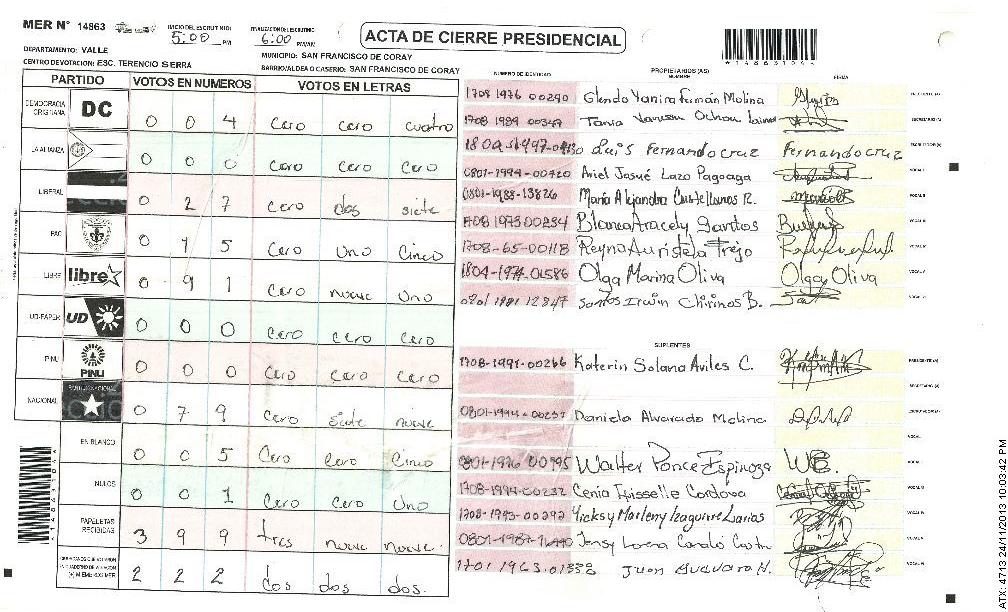 MER N° 14863
INICIO DEL ESCRUTINIO: 5:00 PM
FINALIZACION DEL ESCRUTINIO 6:00 PM/AM
ACTA DE CIERRE PRESIDENCIAL
*14863104*
DEPARTAMENTO: VALLE
MUNICIPIO: SAN FRANCISCO DE CORAY
CENTRO DE VOTACION: ESC. TERENCIO SIERRA
BARRIO/ALDEA O CASERIO: SAN FRANCISCO DE CORAY
PARTIDO VOTOS EN NUMEROS VOTOS EN LETRAS
DEMOCRACIA CRISTIANA DC 0 0 4 cero cero cuatro
LA ALIANZA 0 0 0 cero cero cero
LIBERAL 0 2 7 cero dos siete
PAC 0 1 5 cero uno cinco
LIBRE libre 0 9 1 cero nueve uno
UD-FAPER UD 0 0 0 cero cero cero
PINU PINU 0 0 0 cero cero cero
NACIONAL PARTIDO NACIONAL 0 7 9 cero siete nueve
EN BLANCO 0 0 5 cero cero cinco
NULOS 0 0 1 cero cero uno
PAPELETAS RECIBIDAS 3 9 9 tres nueve nueve
2 2 2 dos dos dos.
NUMERO DE IDENTIDAD PROPIETARIOS (AS) NOMBRE FIRMA
1708 1976 00290 Glenda Yanira Fumán Molina
1708 1989 00347 Tania Vanessa Ochoa
Luis Fernando cruz Fernando cruz
0801-1994-00420 Ariel Josué Lazo Pagoaga
0801-1988-13826 María Alejandra Castellanos R.
1708 1973 00234 Blanca Aracely Santos
1708-65-00118 Reyna Auristela Trejo
1804-1974-01586 Olga Marina Oliva Olga Oliva
0801 1981 12847 Santos Irwin Chirinos B.
SUPLENTES
1708-1991-00266 Katerin Solana Aviles C.
0801-1994-00237 Daniela Alvarado Molina
0801-1976 00795 Walter Ponce Espinoza
1708-1994-00232 Cenia Guisselle Cordova
1708-1995-00292 Yicksy Marleny Izaguirre Larias
Jensy Lorena
1701 1963.01338 Juan Guevara N.
ATX: 4713 24/11/2013 10:03:42 PM